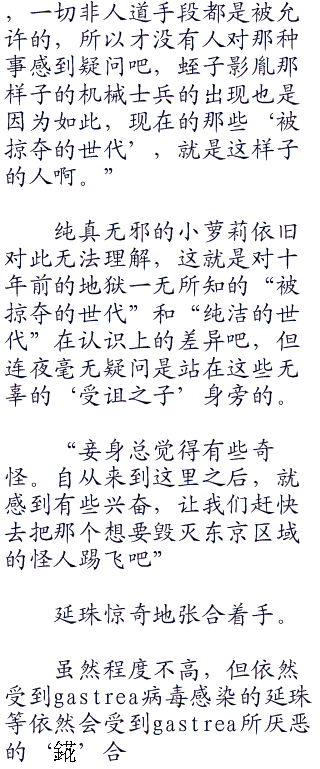 ，一切非人道手段都是被允
许的，所以才没有人对那种
事感到疑问吧，蛭子影胤那
样子的机械士兵的出现也是
因为如此，现在的那些‘被
掠夺的世代’，就是这样子
的人啊。”
纯真无邪的小萝莉依旧
对此无法理解，这就是对十
年前的地狱一无所知的“被
掠夺的世代”和“纯洁的世
代”在认识上的差异吧，但
连夜毫无疑问是站在这些无
辜的‘受诅之子’身旁的。
“妾身总觉得有些奇
怪。自从来到这里之后，就
感到有些兴奋，让我们赶快
去把那个想要毁灭东京区域
的怪人踢飞吧”
延珠惊奇地张合着手。
虽然程度不高，但依然
受到gastrea病毒感染的延珠
等依然会受到gastrea所厌恶
的‘錵’合